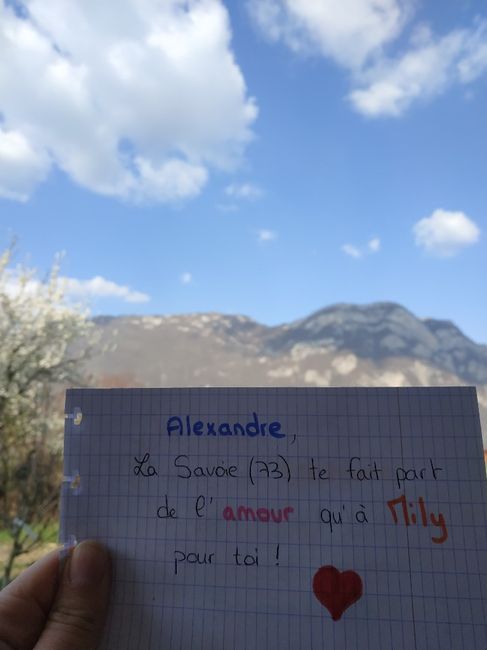 Alexandre,
La Savoie (73) te fait part
de l'amour qu'à Mily
pour toi !